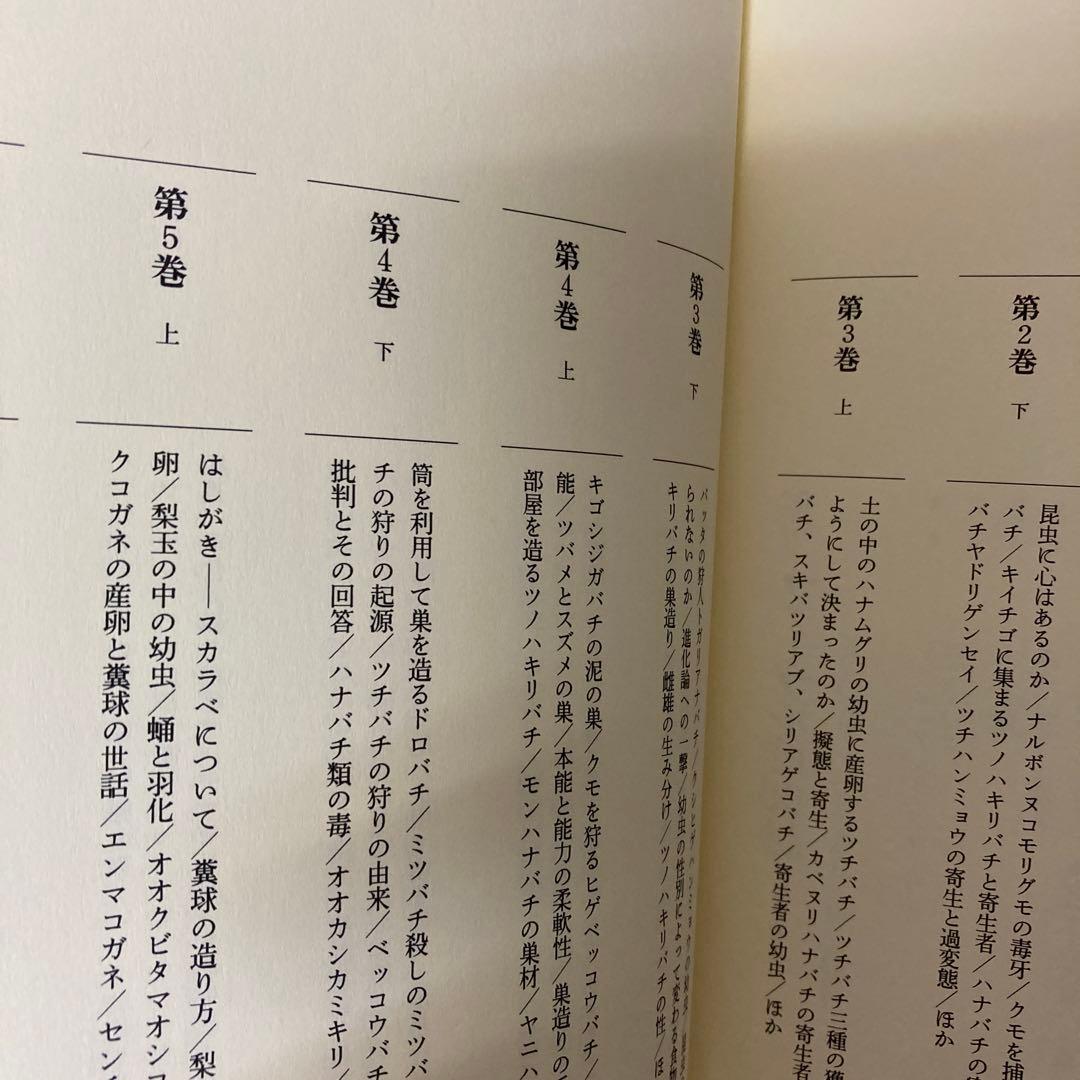 第2巻 下
昆虫に心はあるのか／ナルボンヌコモリグモの毒牙／クモを捕
バチ／キイチゴに集まるツノハキリバチと寄生者／ハナバチの
バチヤドリゲンセイ／ツチハンミョウの寄生と過変態／ほか
第3巻 上
土の中のハナムグリの幼虫に産卵するツチバチ／ツチバチ三種の獲
ようにして決まったのか／擬態と寄生／カベヌリハナバチの寄生者
バチ、スキバツリアブ、シリアゲコバチ／寄生者の幼虫／ほか
第3巻 下
バッタの狩人トガリアナバチ／
られないのか／進化論への一撃／幼虫の性別によって変わる食物
キリバチの巣造り／雌雄の生み分け／ツノハキリバチの性／ほ
第4巻 上
キゴシジガバチの泥の巣／クモを狩るヒゲベッコウバチ／
能／ツバメとスズメの巣／本能と能力の柔軟性／巣造りの
部屋を造るツノハキリバチ／モンハナバチの巣材／ヤニハ
第4巻 下
筒を利用して巣を造るドロバチ／ミツバチ殺しのミツバ
チの狩りの起源／ツチバチの狩りの由来／ベッコウバチ
批判とその回答／ハナバチ類の毒／オオカシカミキリ／
第5巻 上
はしがき──スカラベについて／糞球の造り方／梨
卵／梨玉の中の幼虫／蛹と羽化／オオクビタマオシコ
クコガネの産卵と糞球の世話／エンマコガネ／センチ